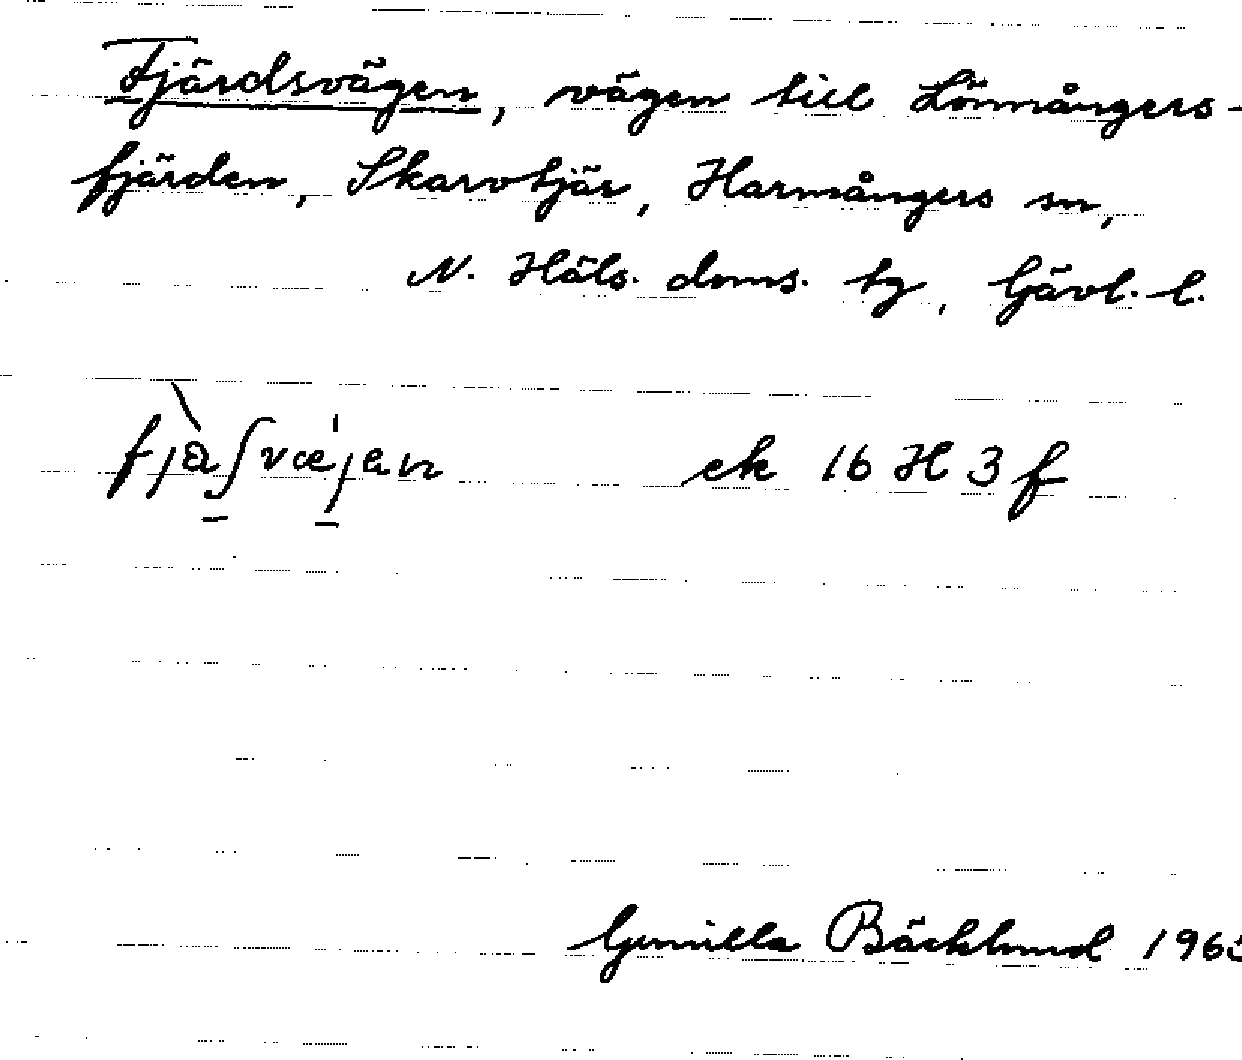 Fjärdsvägen, vägen till Lönnångers-
fjärden, Skarvtjär, Harmångers sn,
N. Häls. doms. tg, Gävl. l.
ek 16 H 3 f
Gunilla Bäcklund